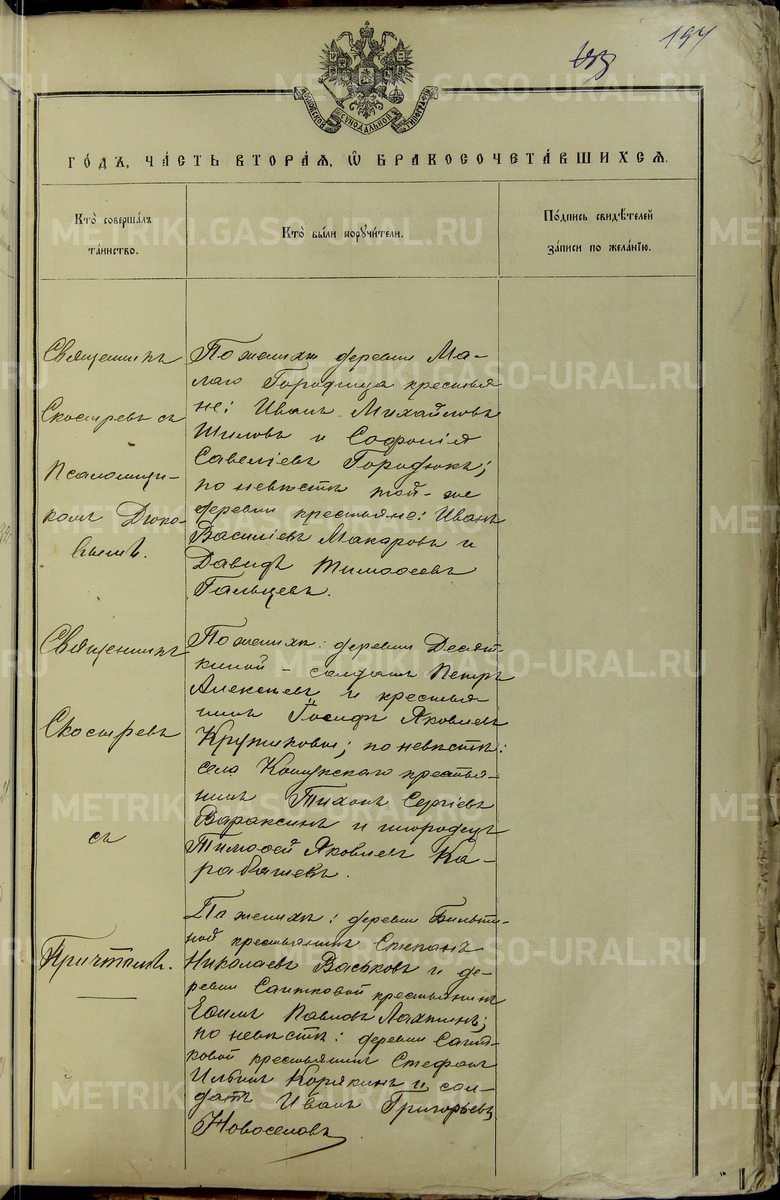 194
МОСКОВСКОЙ СѴНОДАЛЬНОЙ ТИПОГРАФІИ
ГО́ДЪ, ЧА́СТЬ ВТОРА́Я, Ѡ҆ БРАКОСОЧЕТА́ВШИХСЯ.
Кто̀ соверша́лъ
та́инство.
Кто̀ бы́ли поручи́тели.
По́дпись свидѣ́телей
за́писи по жела́нію.
Священникъ
Скосыревъ съ
Псаломщи-
комъ
По женихѣ деревни Ма-
лаго Городища крестья
не: Иванъ Михайловъ
Шиловъ и Софронія
Савеліевъ Городюкъ;
по невѣстѣ той-же
деревни крестьяне: Иванъ
Василіевъ Макаровъ и
Давидъ Тимоѳеевъ
Гальцевъ.
Священникъ
Скосыревъ
съ
Причтомъ.
По женихѣ: деревни Десят-
киной – солдатъ Петръ
Алексѣевъ и крестья-
нинъ Іосифъ Яковлевъ
Крутиковы; по невѣстѣ:
села Кошукскаго крестья-
нинъ Тихонъ Сергіевъ
Вараксинъ и инородецъ
Тимоѳей Яковлевъ Ка-
рабашевъ.
По женихѣ: деревни
ной крестьянинъ Степанъ
Николаевъ Васьковъ и де-
ревни Саитковой крестьянинъ
Ефимъ Павловъ Лахтинъ;
по невѣстѣ: деревни Саит-
ковой крестьянинъ Стефанъ
Ильинъ Корякинъ и сол-
датъ Иванъ Григорьевъ
Новоселовъ
METRIKI.GASO-URAL.RU